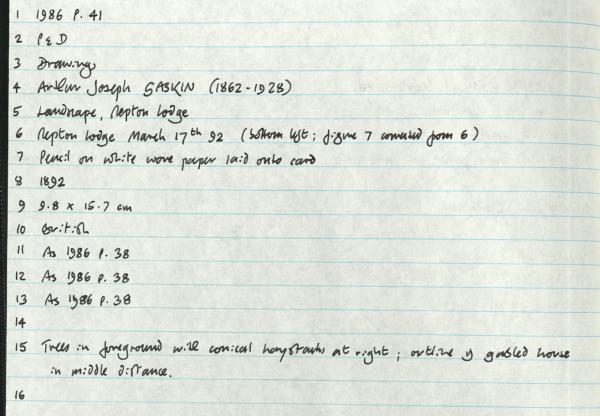 1 1986 P. 41
2 P & D
3 Drawings
4 Arthur Joseph GASKIN (1862-1928)
5 Landscape, Repton Lodge
6 Repton Lodge March 17th 92 (bottom left; figure 7 corrected from 6)
7 Pencil on white wove paper laid onto card
8 1892
9 9.8 x 15.7 cm
10 British
11 As 1986 P. 38
12 As 1986 P. 38
13 As 1986 P. 38
14
15 Trees in foreground with conical haystacks at right; outline of gabled house
in middle distance.
16